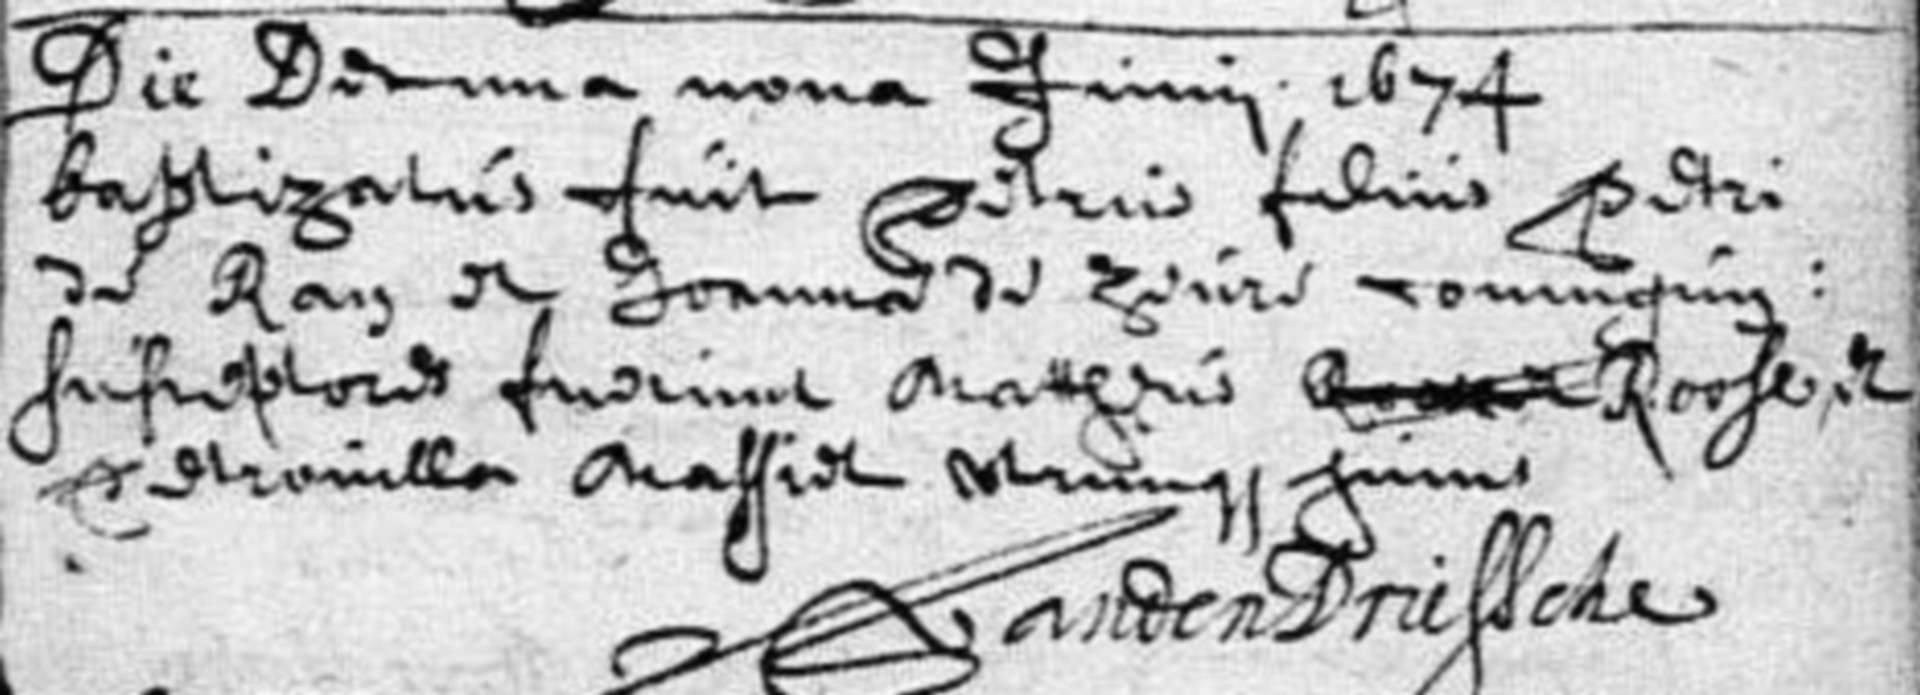 Die Decima nona Junij 1674
baptizatus fuit Petrus filius Petri
de Raij et Joannae de Zeure coniugum:
susceptores fuerunt Mattheus Roose, et
Petronilla Massiet utriusq Juvines
VandenDriessche